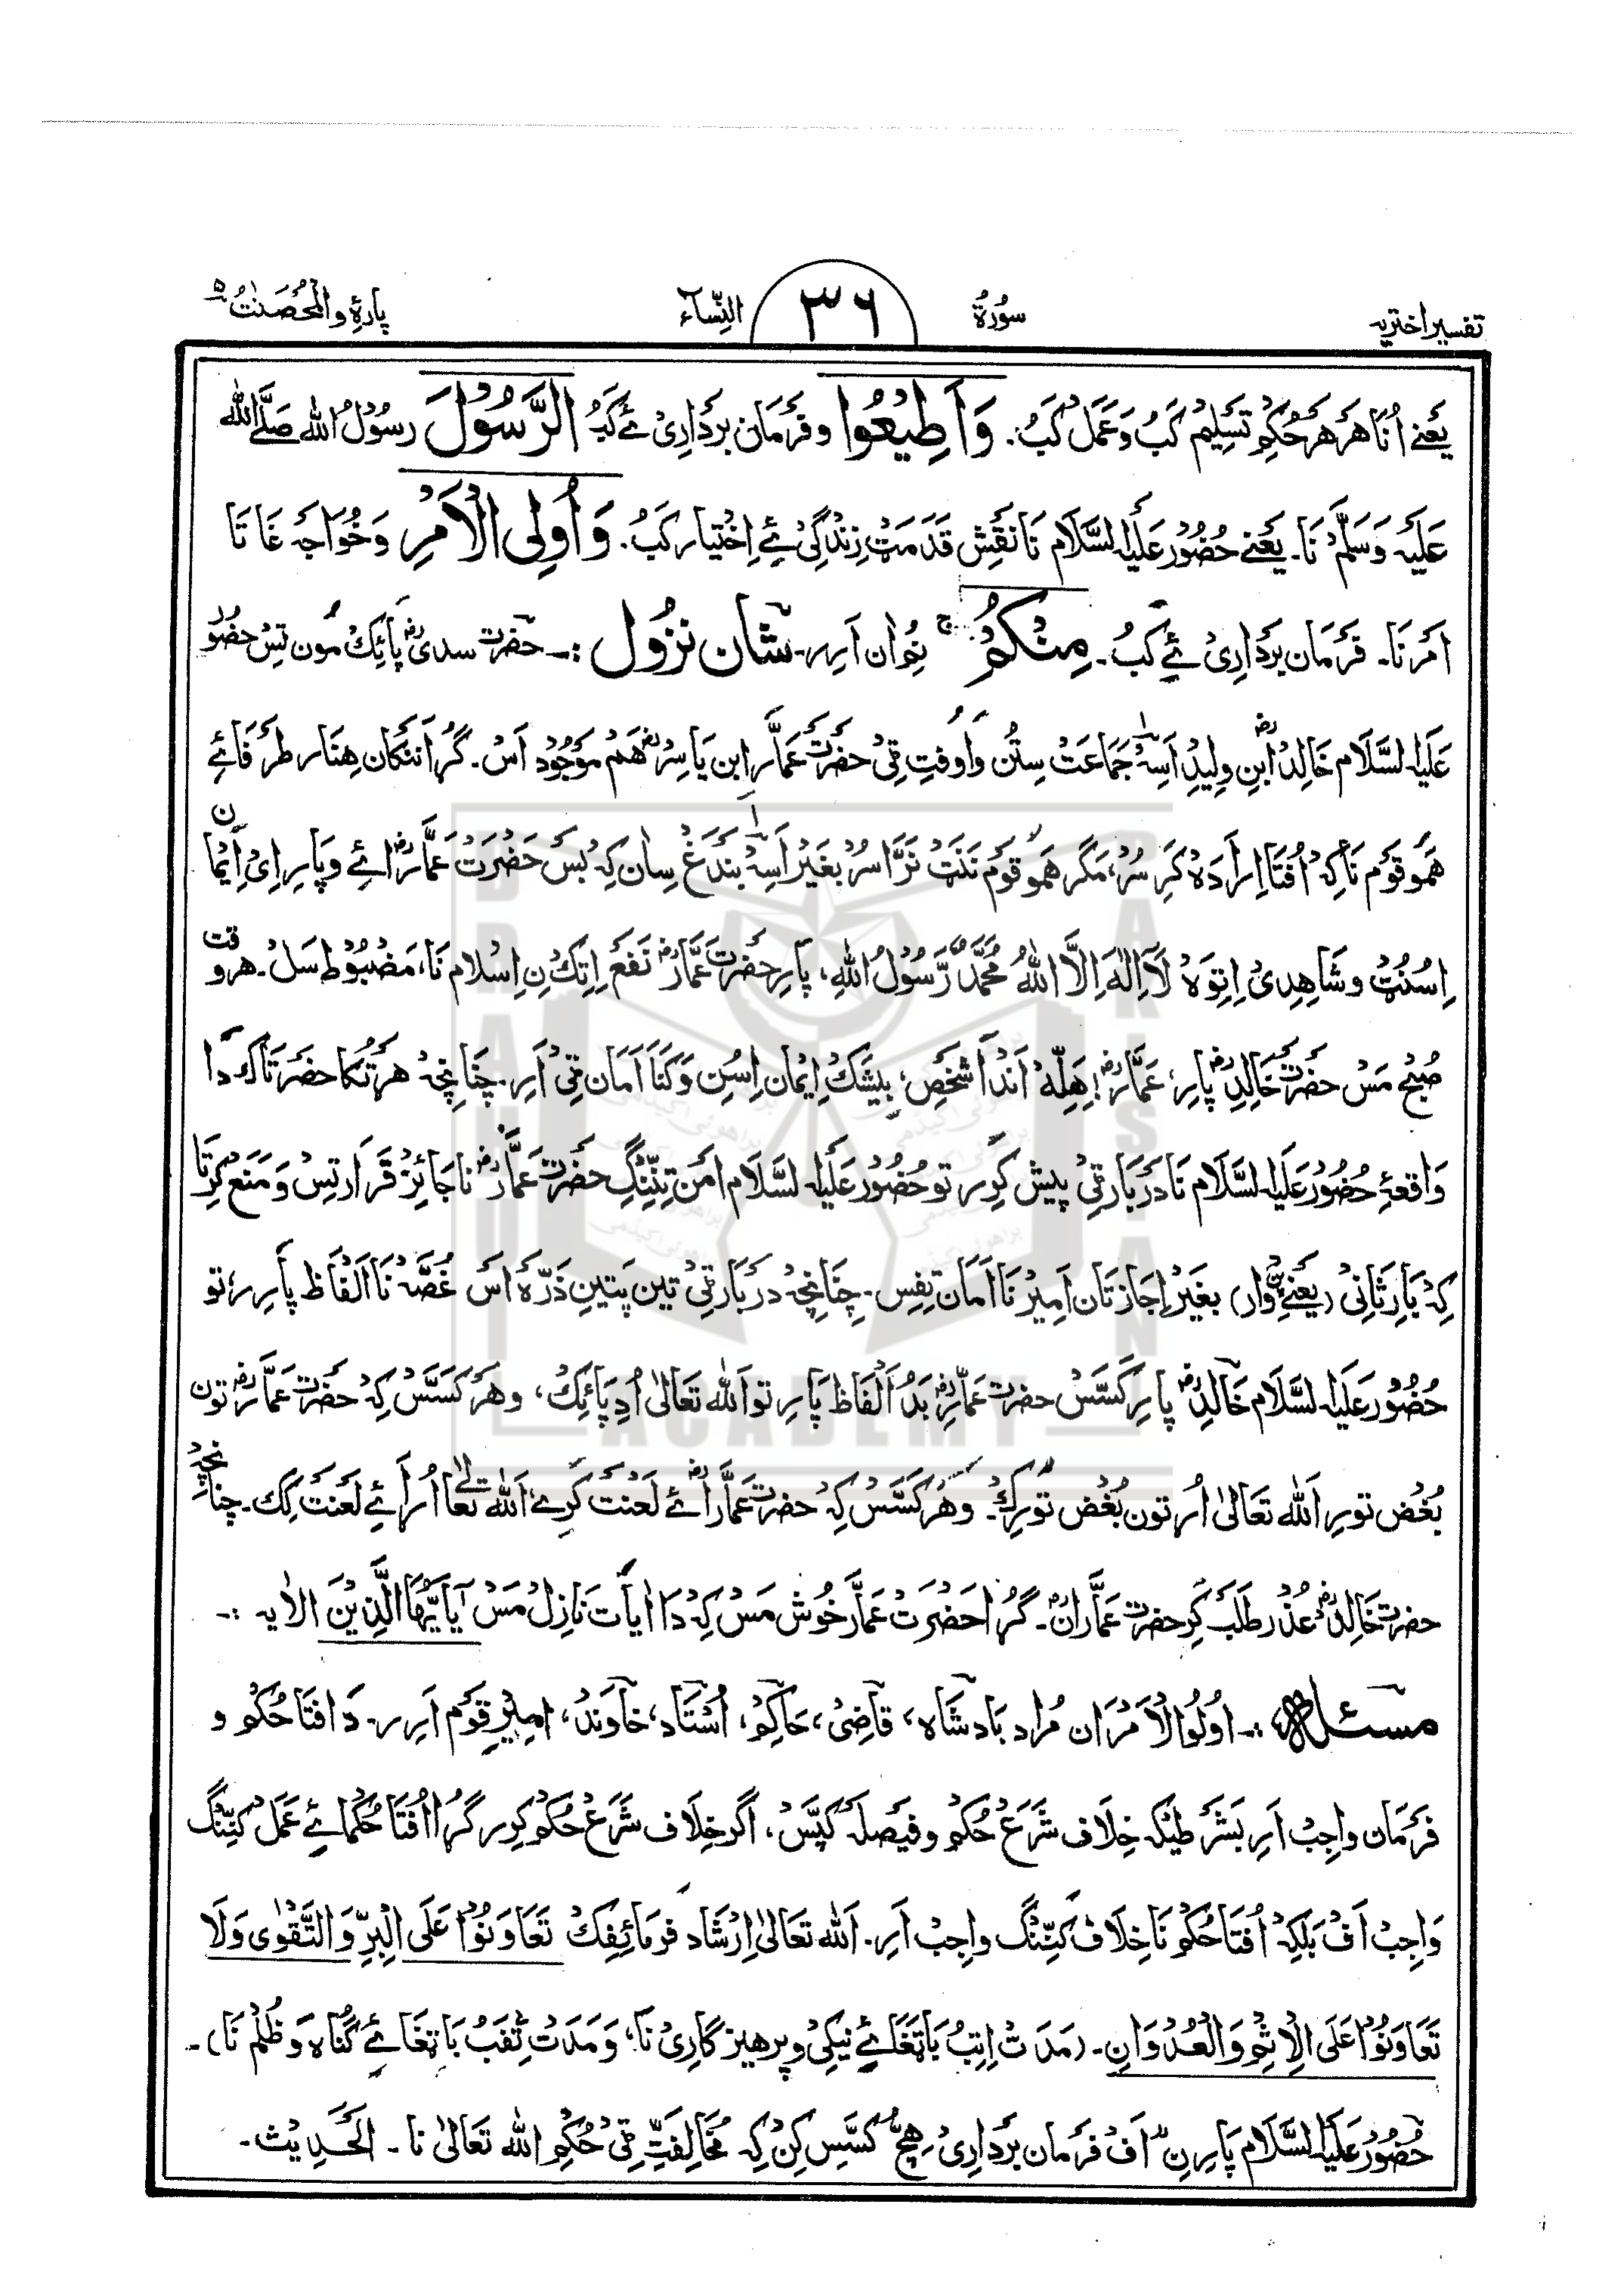 تفسیر اختریہ
سُورۃُ
۳۶
النِّسَآء
پارۂ وَالْمُحْصَنٰتُ ۵
یَعْنِے اُنَا ھَر ھَر حُکِم تَسِلِیْم کَبُ وَ عَمَل کَبُ. وَاَطِیْعُوا و فَرمَان بَرْدَارِیْ ئے کَبُ الرَّسُوْلَ رسُوْلُ اللہ صَلَّے اللہ
عَلَیْہ وَسَلَّمْ نَا۔ یَعْنے حُضُوْر عَلَیْہِ السَّلَام نَا نَقْشِ قَدَمَتٹ زِنْدَگِیْ ئے اِخْتِیَار کَبُ. وَ اُولِی الْاَمْرِ وَ خُوَاجَہ غَا تَا
اَمَرنَا۔ فَرمَان بَرْدَارِیْ ئے کَبُ۔ مِنْکُمْ نُوان اَرِر۔ شان نزُول :۔ حضرت سدیؓ پَائِک مُون تِسْ حضُور
عَلَیْہِ السَّلَام خَالِدؓ ابْنِ وِلِیْد اَسِہ جَمَاعَتْ سِتُن وَ اَوْقتِ ٹِیْ حضرَتْ عَمَّار اِبنِ یَاسِرؓ ھَمْ مَوْجُود اَسْ۔ گُرا اَننِکَان ھِنَار طَرفَائے
ھَمُو قَوْم نَا کِہ اُفْتَا اِرَادَہ کَرِ سُرْ، مَگر ھَمُو قَوْم نَنَتْ نَرَّا سُر بغَیْر اَسِہ بَنْدَغْ سِان کِہ بَس حَضْرَتْ عَمَّارؓ ائے وَ پَارِ اِیْ اِیْمَان
اِسُنُتْ و شَاھِدِیْ اِتِوَہ لَآ اِلٰہَ اِلَّا اللہُ مُحَمَّدٌ رَّسُوْلُ اللہِ، پَارِ حضرَتْ عَمَّارؓ نَفَعْ اِتِکُ نِ اِسْلام نَا، مَضْبُوْط سَلْ۔ ھر وقت
صُبْح مَسْ حضرَتْ خَالِدؓ پَارِ، عَمَّارؓ! ھِلِّہْ اَنْدَا شَخْص، بِیْشَکْ اِیْمَان اِسُن وَ کَنَا اَمَان ٹِیْ اَرِ۔ چُنَانِچِہ ھَر تُکَا حضرَتَاک دَا
وَاقِعَۂ حُضُوْر عَلَیْہِ السَّلَام نَا دَرْبَار ٹِیْ پِیْش کِرِر تو حُضُوْر عَلَیْہِ السَّلَام اَمْن تِنِّنِگ حضرَتْ عَمَّارؓ نا جَائِز قَرَار تِسْ وَ مَنَع کِرتَا
کِہْ بَارِ ثَانِیْ (یَعْنے وَار) بغَیْر اِجَازتَان اَمِیْر نَا اَمَان تِفِس۔ چُنَانِچِہ دَرْبَار ٹِیْ تین پَتِین ذَرَّہ اَس غُصَّہ نَا اَلْفَاظ پَارِر، تو
حُضُوْر عَلَیْہِ السَّلَام خَالِدؓ پَارِ کَسَّسْ حضرَت عَمَّارؓ بَدْ اَلْفَاظ پَارِ تو اَللہ تَعَالیٰ اُدِ پَائِکْ، وھَر کَسَّسْ کِہْ حضرَتْ عَمَّارؓ تون
بُغْض تورِ اَللہ تَعَالیٰ اُر تون بُغْض تورِکْ۔ وَ ھَر کَسَّسْ کِہْ حضرَتْ عَمَّارؓ ائے لَعْنَت کَرے، اَللہ تعالیٰ اُرائے لَعنَت کِک۔ چنانچہ
حضرت خَالِدؓ عُذْر طَلَبْ کَرِ حضرت عَمَّارانؓ۔ گُرا حَضْرَتْ عَمَّار خُوش مَسْ کِہْ دَا اٰیات نَازِلْ مَسْ یٰآ اَیُّھَا الَّذِیْنَ الاٰیہ :۔
مسئلہ :۔ اُولُو الْاَمْرَ ان مُراد بَادشَاہ، قَاضِیْ، حَاکِم، اُسْتَاد، خَاوَنْد، اَمِیْرِ قَوْم اَرِر۔ دَ افتَا حُکْم و
فَرمَان واجِبْ اَرِ بَشَر طیکہ خِلَاف شَرَعْ حُکْم و فَیصلَہ کِپَّسْ، اَگر خِلَاف شَرَعْ حُکْم کِرِر گُرا اُفْتَا حُکْمائے عَمَلْ کَنِّنْگ
وَاجِبْ اَفْ بَلکِہْ اُفْتَا حُکْم نَا خِلَاف کَنِّنْگ واجِبْ اَرِ۔ اَللہ تَعَالیٰ اِرْشَاد فَرمَائِفِکْ تَعَاوَنُوْا عَلَی الْبِرِّ وَالتَّقْوٰی وَلَا
تَعَاوَنُوْا عَلَی الْاِثْمِ وَالْعُدْوَانِ۔ (مَدَتْ اِتِبُ بَاتغَائے نیکِیْ و پرھیزگارِیْ نَا، وَ مَدَتْ تِفَبُ بَاتغَائے گُنَاہ وَ ظُلْم نَا)۔
حُضُوْر عَلَیْہِ السَّلَام پَارِنِ "اَفْ فَرمَان بَرْدَارِیْ ھِچُّ کَسِّس کِنْ کِہ مُخَالِفَتِّ ٹِیْ حُکْمِ اللہ تَعَالیٰ نا۔ الْحَدِیْث۔
BRAHUI ACADEMY PAKISTAN